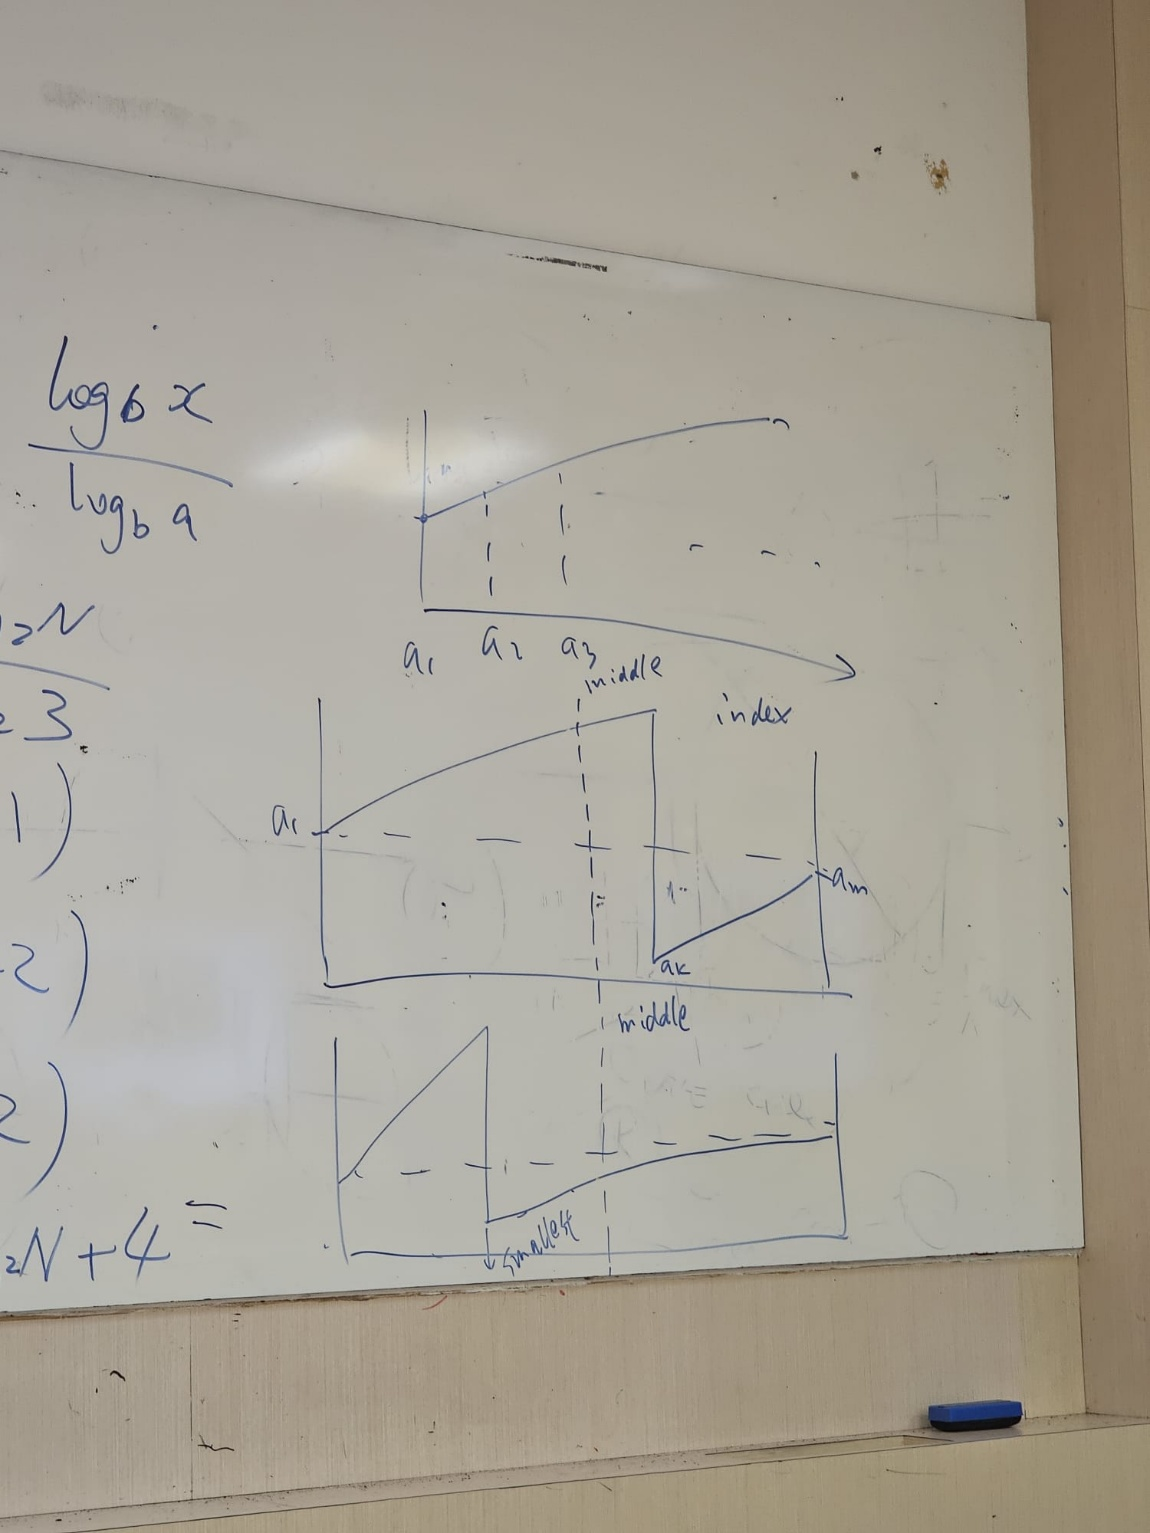 log_b x
log_b a
2N
2 3
1)
2)
2)
2N + 4 =
a1 a2 a3
index
middle
a1
am
ak
middle
smallest